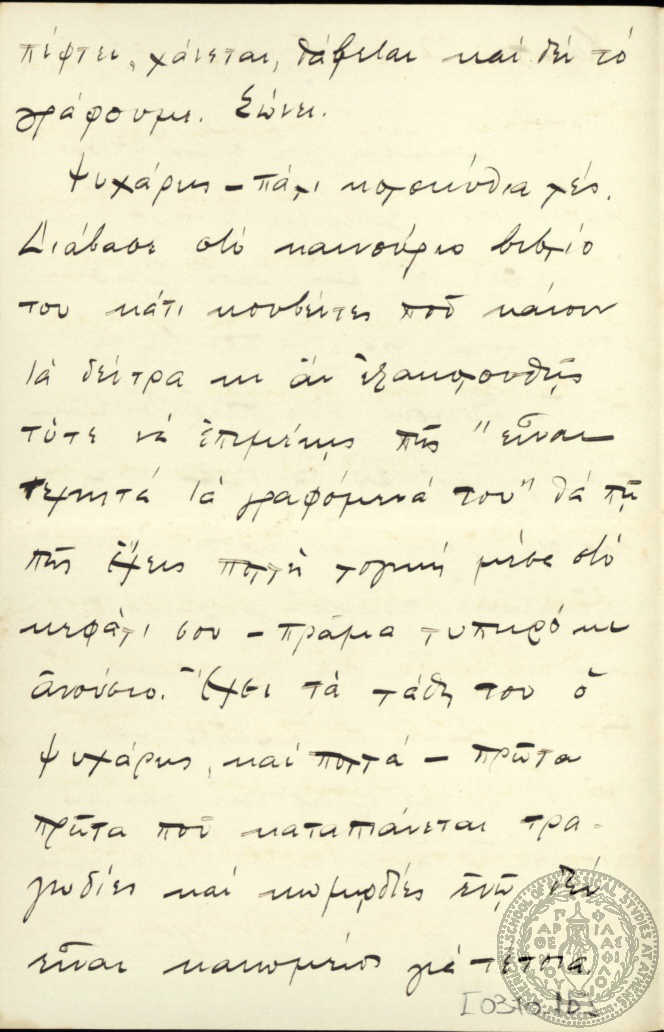 πέφτει, χάνεται, θάβεται καὶ δὲν τὸ
γράφουμε. Σώνει.
Ψυχάρης – πάλι κολοκύθια λές.
Διάβασε στὸ καινούριο βιβλίο
του κάτι κουβέντες ποῦ κάνουν
τὰ δέντρα κι ἂν ἐξακολουθῇς
τότε νὰ ἐπιμένῃς πῶς "εἶναι
τεχνητὰ τὰ γραφόμενά του" θὰ πῇ
πῶς ἔχεις πολλὴ λογικὴ μέσα στὸ
κεφάλι σου – πρᾶμα λυπηρὸ κι
ἀνούσιο. Ἔχει τὰ λάθη του ὁ
Ψυχάρης, καὶ πολλά – πρῶτα
πρῶτα ποῦ καταπιάνεται τρα-
γωδίες καὶ κωμῳδίες ἐνῷ δὲν
εἶναι καμωμένος γιὰ τέτοια.